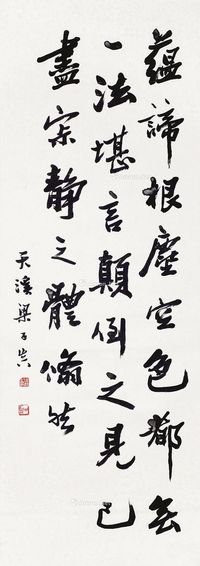 蘊諦根塵空色都無
一法堪言顛倒之見已
盡寂靜之體翛然
天溪梁子